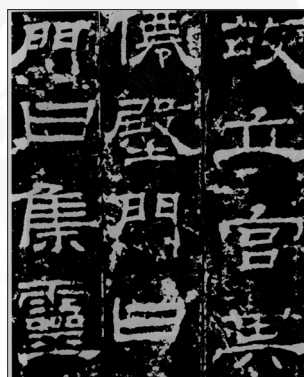 故立宮其
僊壂門曰
門曰集靈